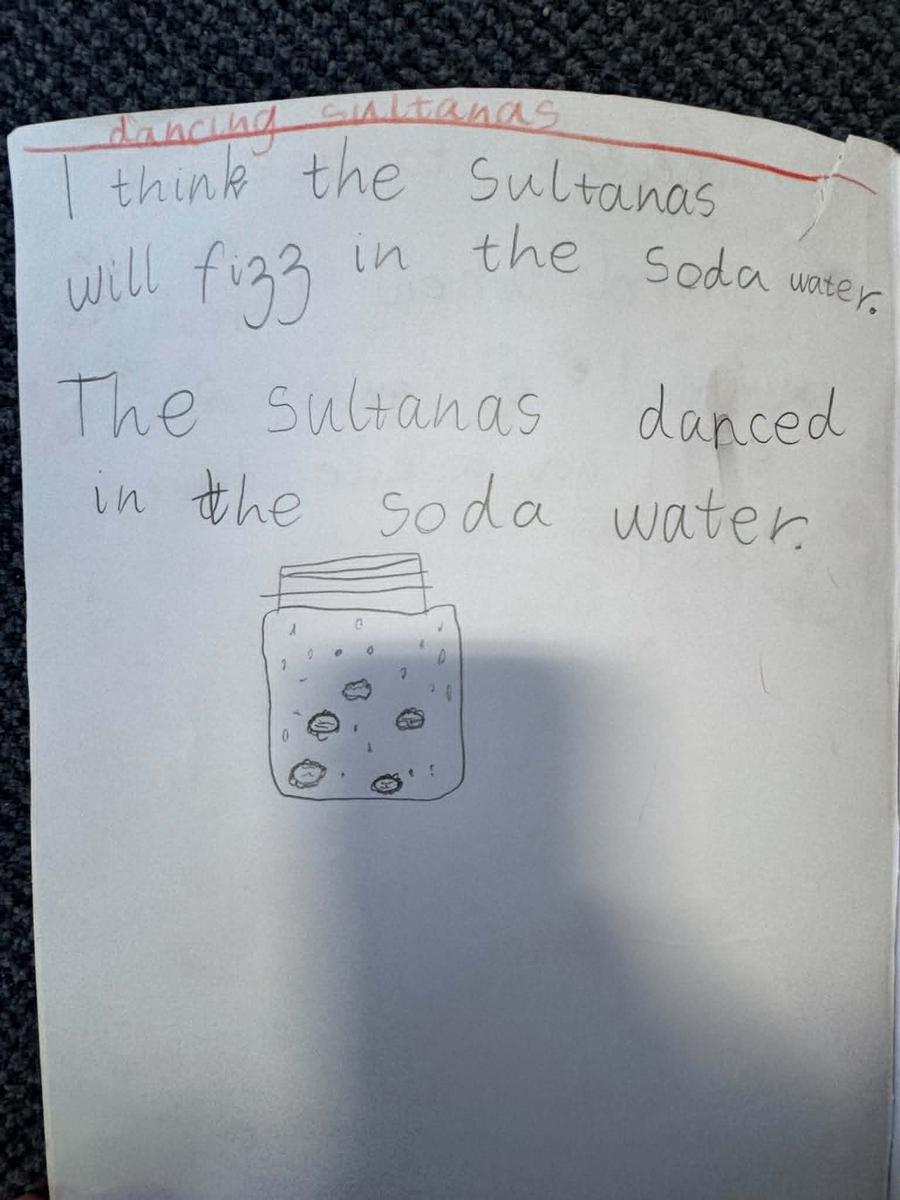 dancing sultanas
I think the Sultanas
will fizz in the soda water.
The sultanas danced
in the soda water.